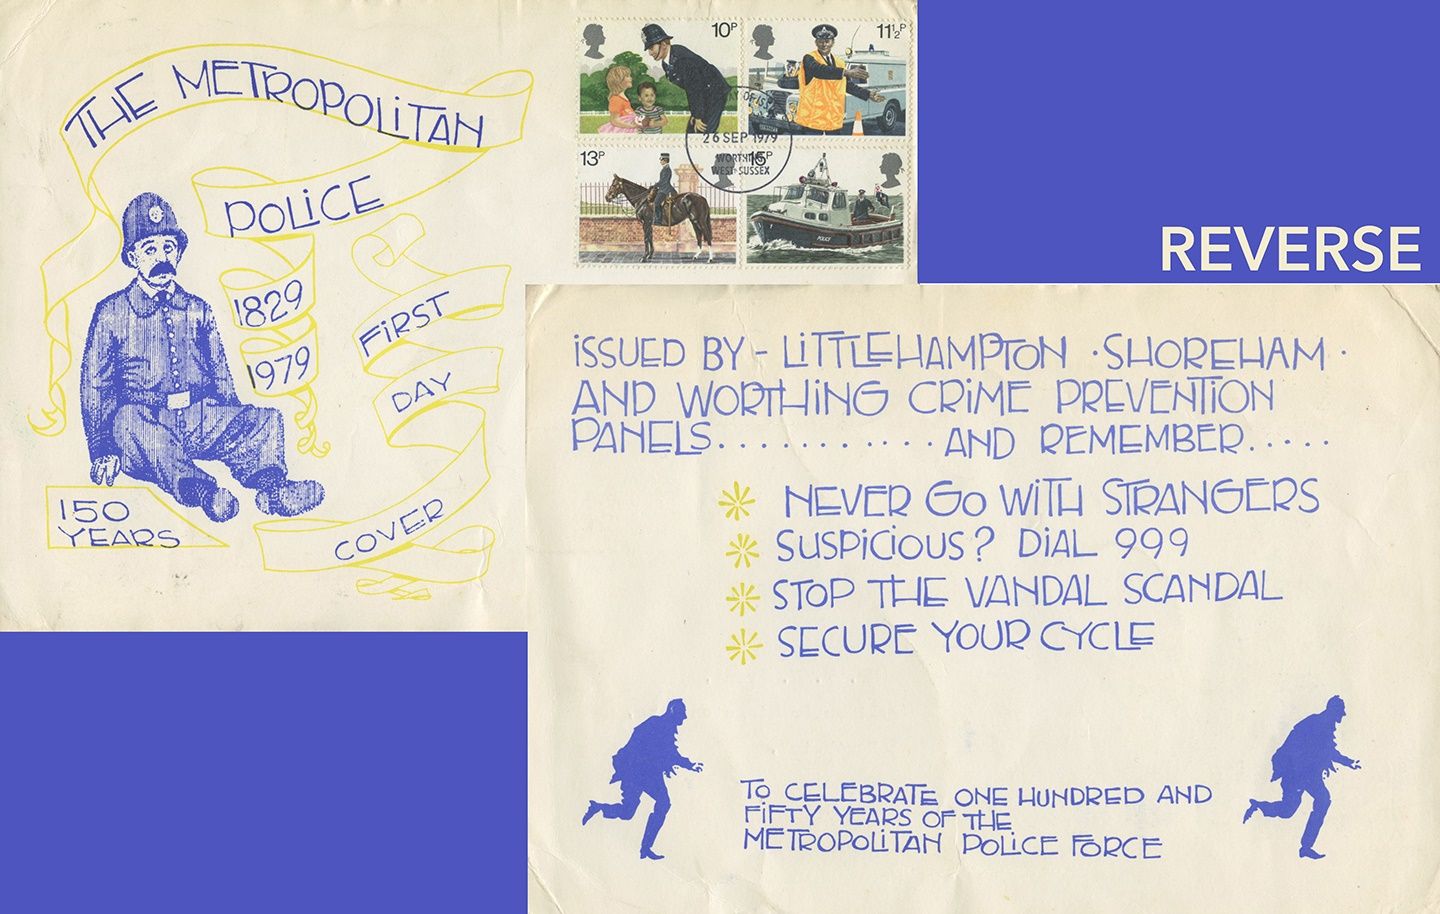 THE METROPOLITAN
POLICE
1829
1979
FIRST
DAY
COVER
150
YEARS
10P
11½P
13P
15P
POLICE
26 SEP 1979
WORTHING
WEST SUSSEX
REVERSE
ISSUED BY - LITTLEHAMPTON · SHOREHAM ·
AND WORTHING CRIME PREVENTION
PANELS........... AND REMEMBER.....
NEVER GO WITH STRANGERS
SUSPICIOUS? DIAL 999
STOP THE VANDAL SCANDAL
SECURE YOUR CYCLE
TO CELEBRATE ONE HUNDRED AND
FIFTY YEARS OF THE
METROPOLITAN POLICE FORCE